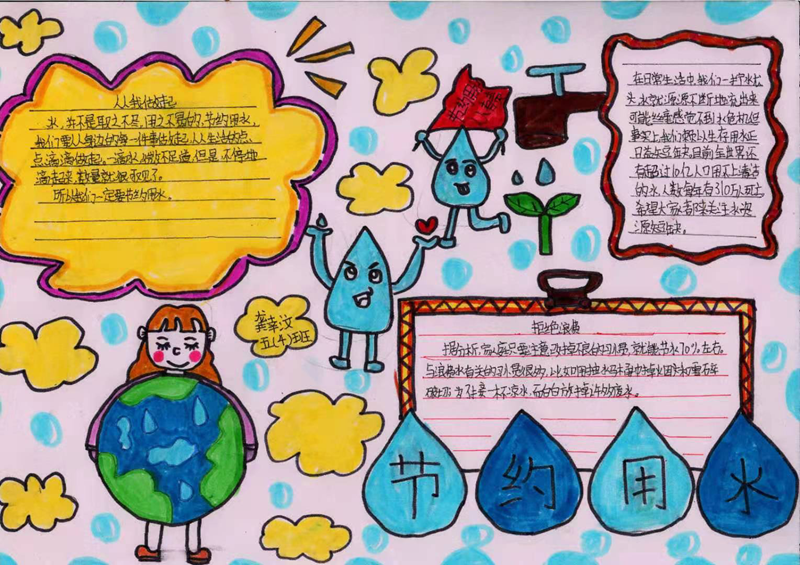 人人我做起
水,并不是取之不尽,用之不竭的,节约用水,
我们要从身边的每一件事做起,从人生活的点
点滴滴做起。一滴水,微不足道,但是,不停地
滴起来,数量就很可观了。
所以我们一定要节约用水。
在日常生活中,我们一拧水龙
头,水就源源不断地流出来
可能丝毫感觉不到水危机,但
事实上,我们赖以生存用水正
日益短缺,目前,全世界还
有超过10亿人口用不上清洁
的水,人数每年有310万人死亡
希望大家有关注水资
源短缺。
龚幸汶
五(4)班
拒绝浪费
据分析,家庭只要注意改掉不良的习惯,就能节水70%左右。
与浪费水有关的习惯很多,比如:用抽水马桶冲掉烟头和
为了接一杯凉水,而白白放掉许多废水。
节约用水